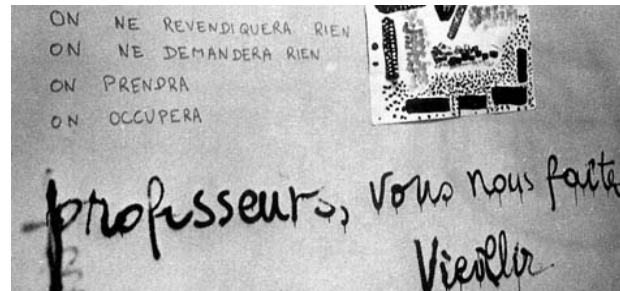 ON NE REVENDIQUERA RIEN
ON NE DEMANDERA RIEN
ON PRENDRA
ON OCCUPERA
professeurs, vous nous faite
vieillir